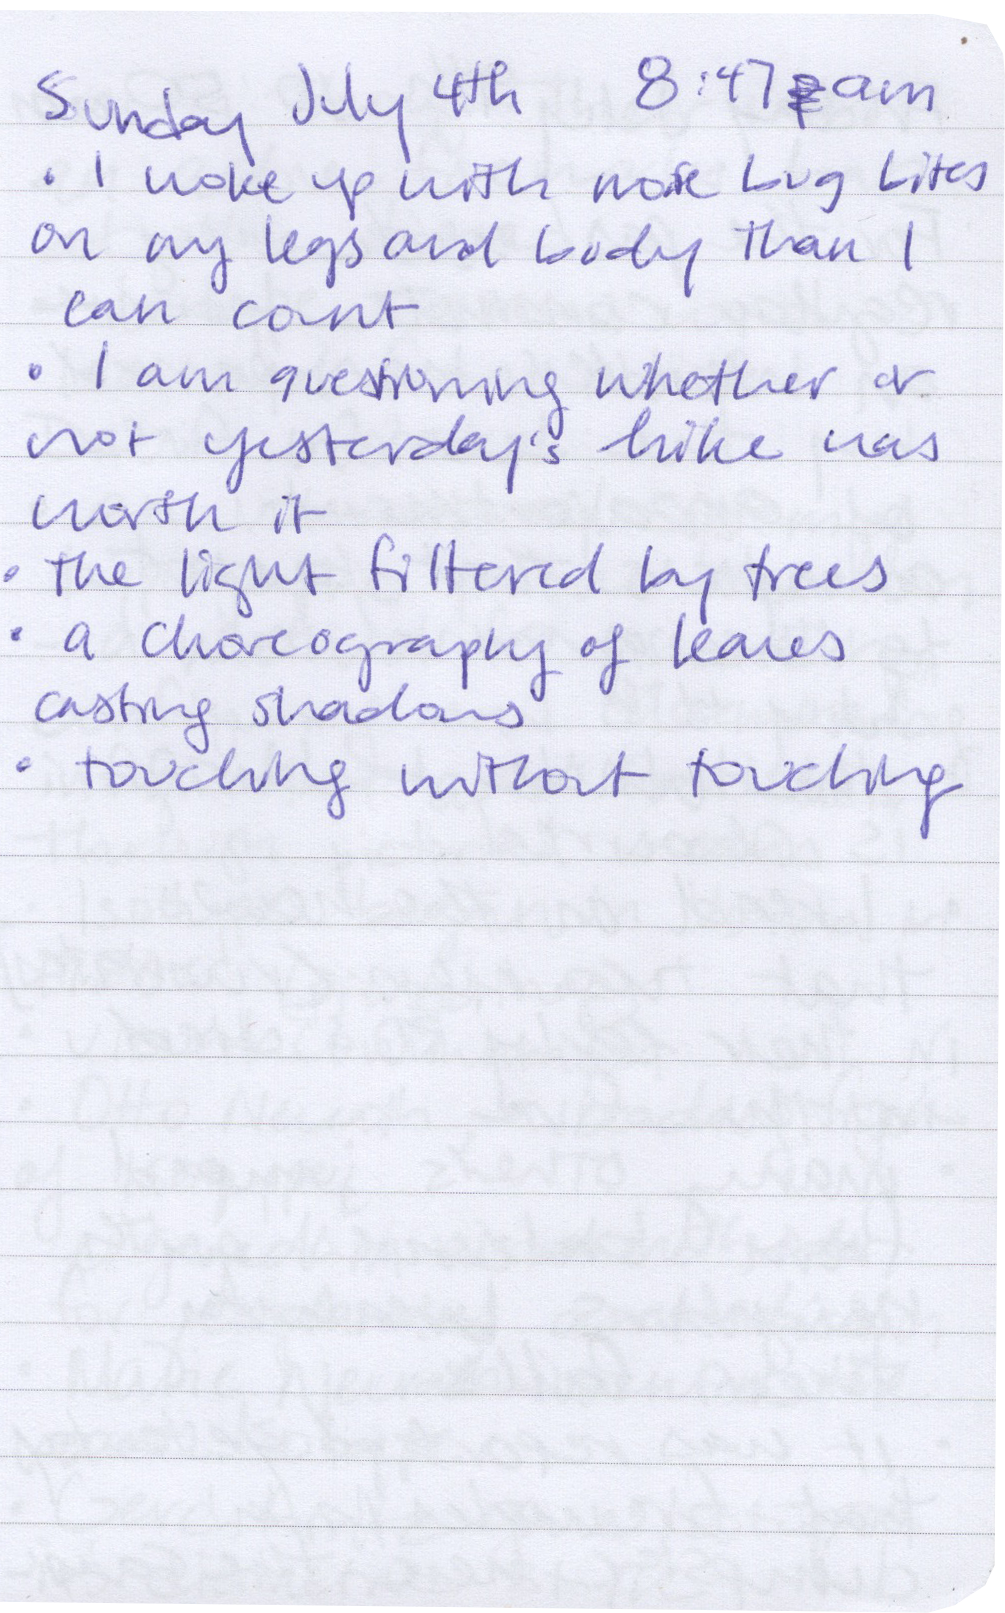 Sunday July 4th 8:47 am
• I woke up with more bug bites
on my legs and body than I
can count
• I am questioning whether or
not yesterday's hike was
worth it
• the light filtered by trees
• a choreography of leaves
casting shadows
• touching without touching